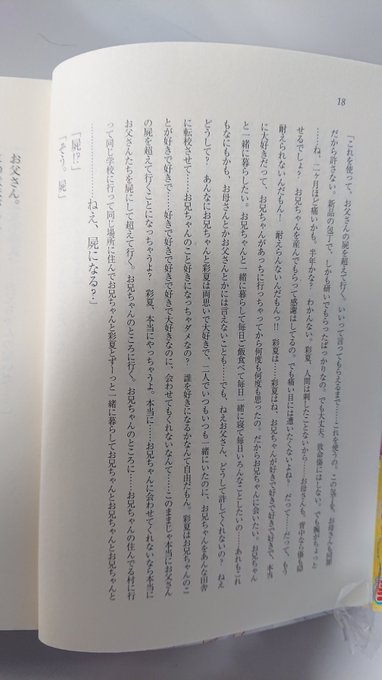 18
「これを使って、お父さんの屍を超えて行く。いいって言ってもらえるまで……これを使うの。この包丁を。お母さんも同罪
だから許さない。新品の包丁で、しかも研いでもらったばっかりなの。でも大丈夫、致命傷にはしない。でも腕がちょっと
……ね、二ヶ月ほど痛いかも。半年かな？　わかんない。彩夏、人間は刺したことないから……お母さんも、背中なら傷も隠
せるでしょ？　お兄ちゃんを産んでもらって感謝はしてるの。でも痛い目には遭いたくないよね？　だって……だって、もう
耐えられないんだもん！　耐えらんないんだもんっ!!　彩夏は……彩夏はね、お兄ちゃんが好きで好きで好きで、本当
に大好きだって、お兄ちゃんがあっちに行っちゃってから何度も何度も思ったの。だからお兄ちゃんに会いたい。お兄ちゃん
と一緒に暮らしたい。お兄ちゃんと一緒に暮らして毎日ご飯食べて毎日一緒に寝て毎日いろんなことしたいの……あれもこれ
もなにもかも、お母さんとかお父さんとかには言えないことも……でも、ねえお父さん、どうして許してくれない？　ねえ
どうして？　あんなにお兄ちゃんと彩夏は両思いで大好きで、二人でいつもいつも一緒にいたのに、お兄ちゃんをあんな田舎
に転校させて……お兄ちゃんのこと好きになっちゃダメなの？　誰を好きになるかなんて自由だもん。彩夏はお兄ちゃんのこ
とが好きで好きで……好きで好きで好きで好きで大好きなのに、会わせてもくれないなんて……このままじゃ本当にお父さん
の屍を超えて行くことになっちゃうよ？　彩夏、本当にやっちゃうよ。本当に……お兄ちゃんに会わせてくれないなら本当に
お父さんたちを屍にして超えて行く。お兄ちゃんのところに行く。お兄ちゃんのところに……お兄ちゃんの住んでる村に行
って同じ学校に行って同じ場所に住んでお兄ちゃんと彩夏とずーっと一緒に暮らしてお兄ちゃんとお兄ちゃんとお兄ちゃんと
…………ねえ、屍になる？」
「屍!?」
「そう。屍」
お父さん。